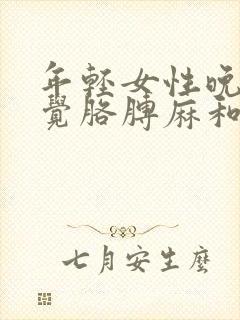 年輕女性晚
覺胳膊麻和
七月安生麼